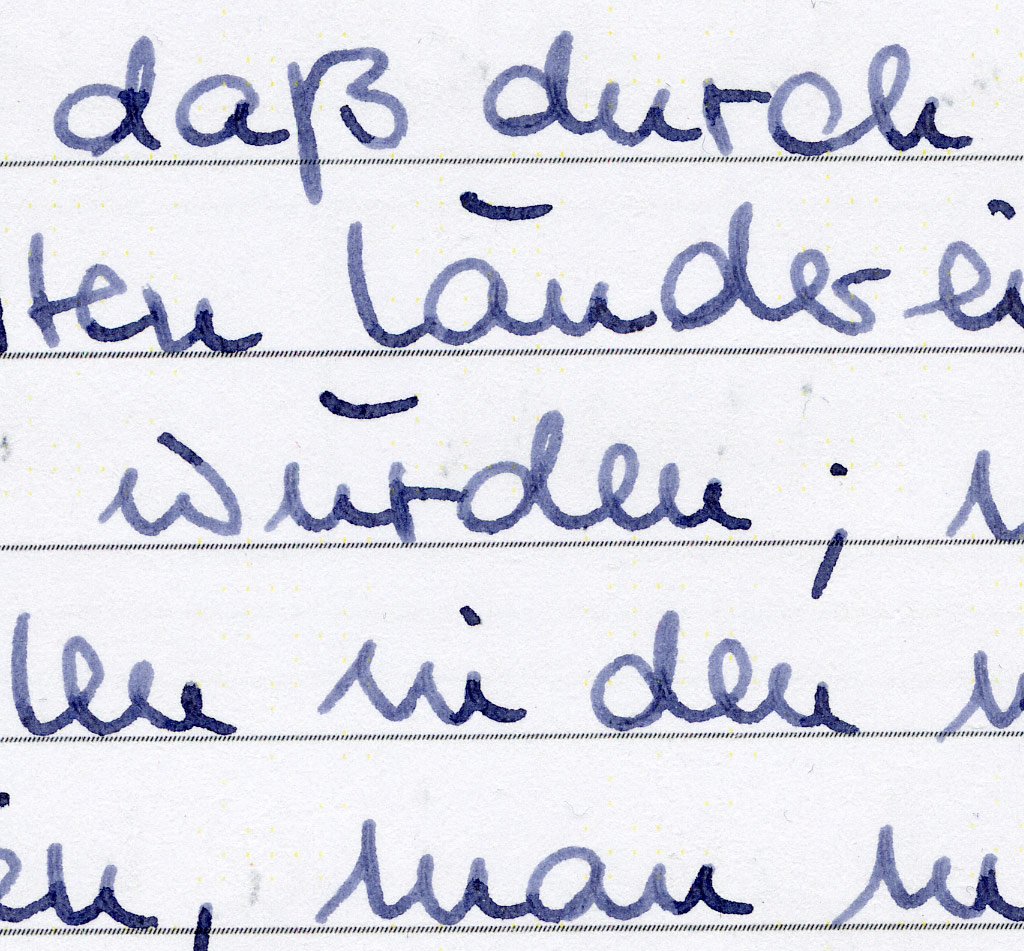 daß durch
ten Länder ei
würden ;
len den
en, man